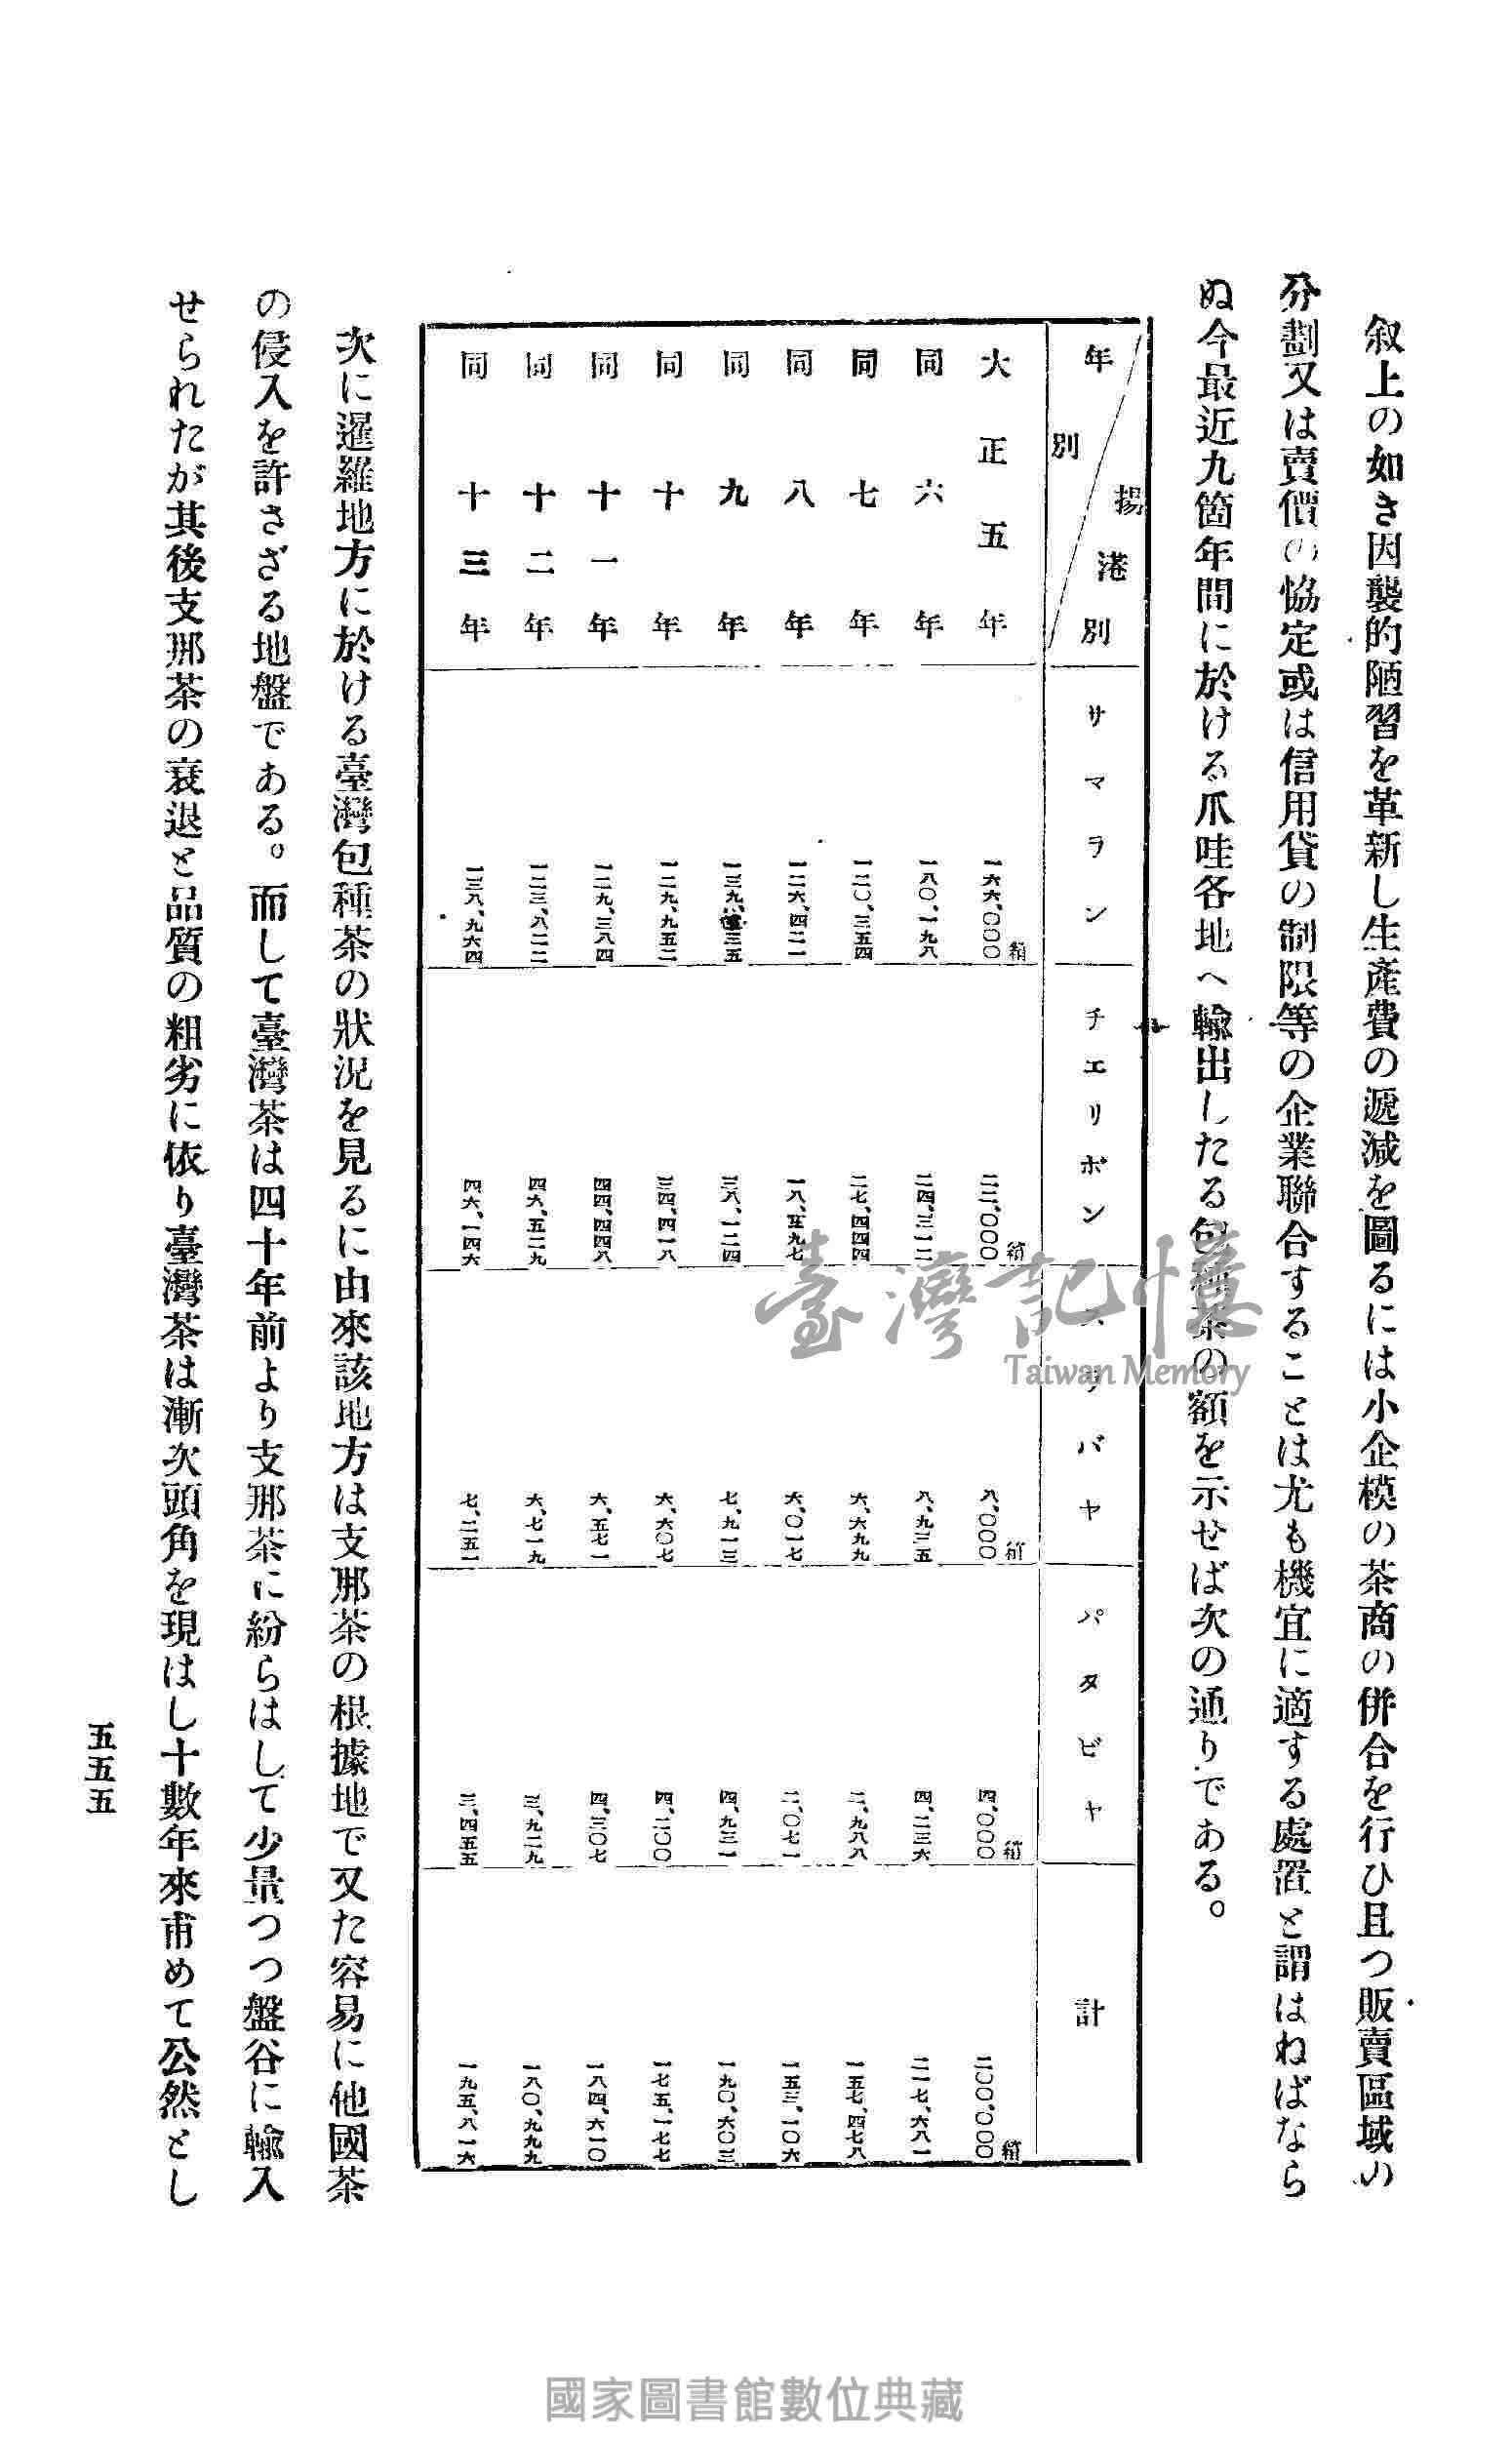 叙上の如き因襲的陋習を革新し生產費の遞減を圖るには小企模の茶商の併合を行ひ且つ販賣區域の
分劃又は賣價の恊定或は信用貸の制限等の企業聯合することは尤も機宜に適する處置と謂はねばなら
ぬ今最近九箇年間に於ける爪哇各地へ輸出したる包種茶の額を示せば次の通りである。
年別 揚港別 サマラン チエリボン スラバヤ バタビヤ 計
大正五年 一六六、〇〇〇箱 二二、〇〇〇箱 八、〇〇〇箱 四、〇〇〇箱 二〇〇、〇〇〇箱
同六年 一八〇、一九八 二四、三一二 八、九三五 四、二三六 二一七、六八一
同七年 一二〇、三五四 二七、四四四 六、六九九 二、九八八 一五七、四七八
同八年 一二六、四二一 一八、五九七 六、〇一七 二、〇七一 一五三、一〇六
同九年 三八、一二四 七、九一三 四、九三一 一九〇、六〇三
同十年 一二九、九五二 三四、四一八 六、六〇七 四、二〇〇 一七五、一七七
同十一年 一二九、三八四 四四、四四八 六、五七一 四、三〇七 一八四、六一〇
同十二年 一二三、八二二 四六、五二九 六、七一九 三、九二九 一八〇、九九九
同十三年 一三八、九六四 四六、一四六 七、二五一 三、四五五 一九五、八一六
次に暹羅地方に於ける臺灣包種茶の狀況を見るに由來該地方は支那茶の根據地で又た容易に他國茶
の侵入を許さざる地盤である。而して臺灣茶は四十年前より支那茶に紛らはして少量つつ盤谷に輸入
せられたが其後支那茶の衰退と品質の粗劣に依り臺灣茶は漸次頭角を現はし十數年來甫めて公然とし
五五五
臺灣記憶
Taiwan Memory
國家圖書館數位典藏